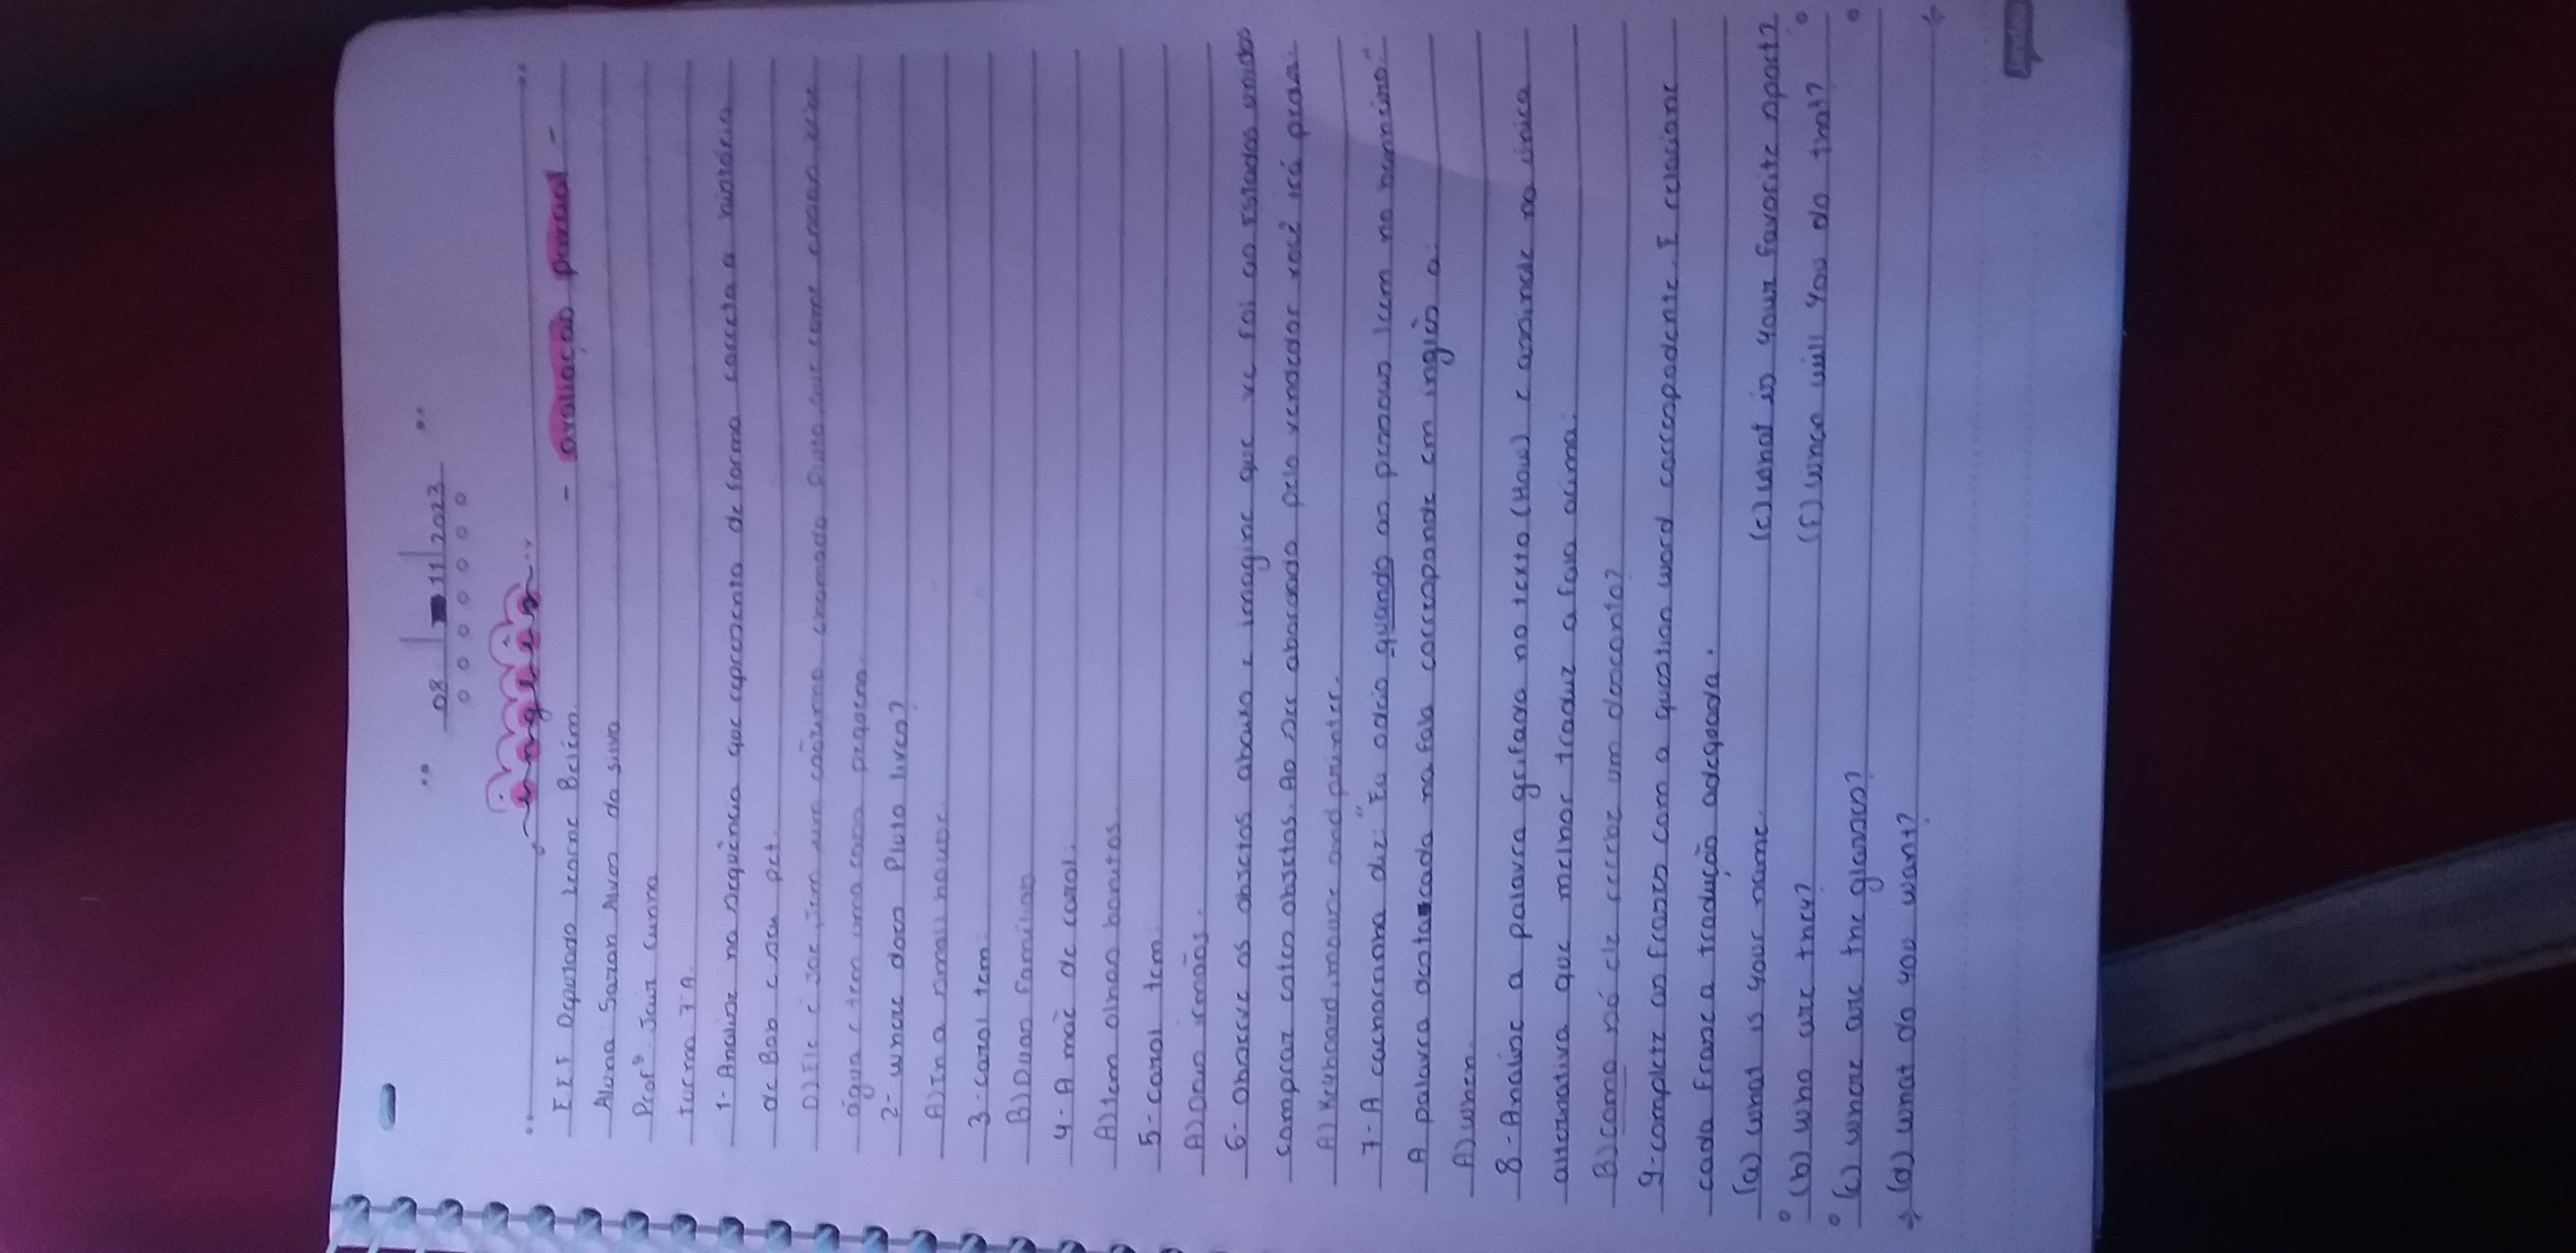 08 11 2023
inglês
- avaliação parcial -
E E F Deputado Leorne Belém
Aluna Sarah Alves da Silva
Profº. Jair Cunha
turma 7ºA
1- Analise na sequência que representa de forma correta a história
de Bob e seu pet.
D) Ele é Joe, tem um cãozinho chamado Pluto, que come
água e tem uma casa pequena.
2- where does Pluto lives?
A) In a small house.
3- carol tem:
B) Duas famílias
4- A mãe de carol:
A) tem olhos bonitos.
5- carol tem:
A) dois irmãos.
6- observe os objetos abaixo e imagine que vc foi ao Estados unidos
comprar estes objetos. Ao ser abordado pelo vendedor você irá pedir:
A) Keyboard, mouse and printer.
7- A cachorrinha diz: "Eu odeio quando as pessoas leem no banheiro".
A palavra destacada na fala corresponde em inglês a:
A) when.
8- Analise a palavra grifada no texto (How) e assinale na única
alternativa que melhor traduz a fala acima:
B) como nó ele recebe um desconto?
9- complete as frases com a question word correspondente. E relacione
cada frase a tradução adequada.
(a) what is your name. (e) what is your favorite sport?
(b) who are they? (f) when will you do that?
(c) where are the glasses?
(d) what do you want?